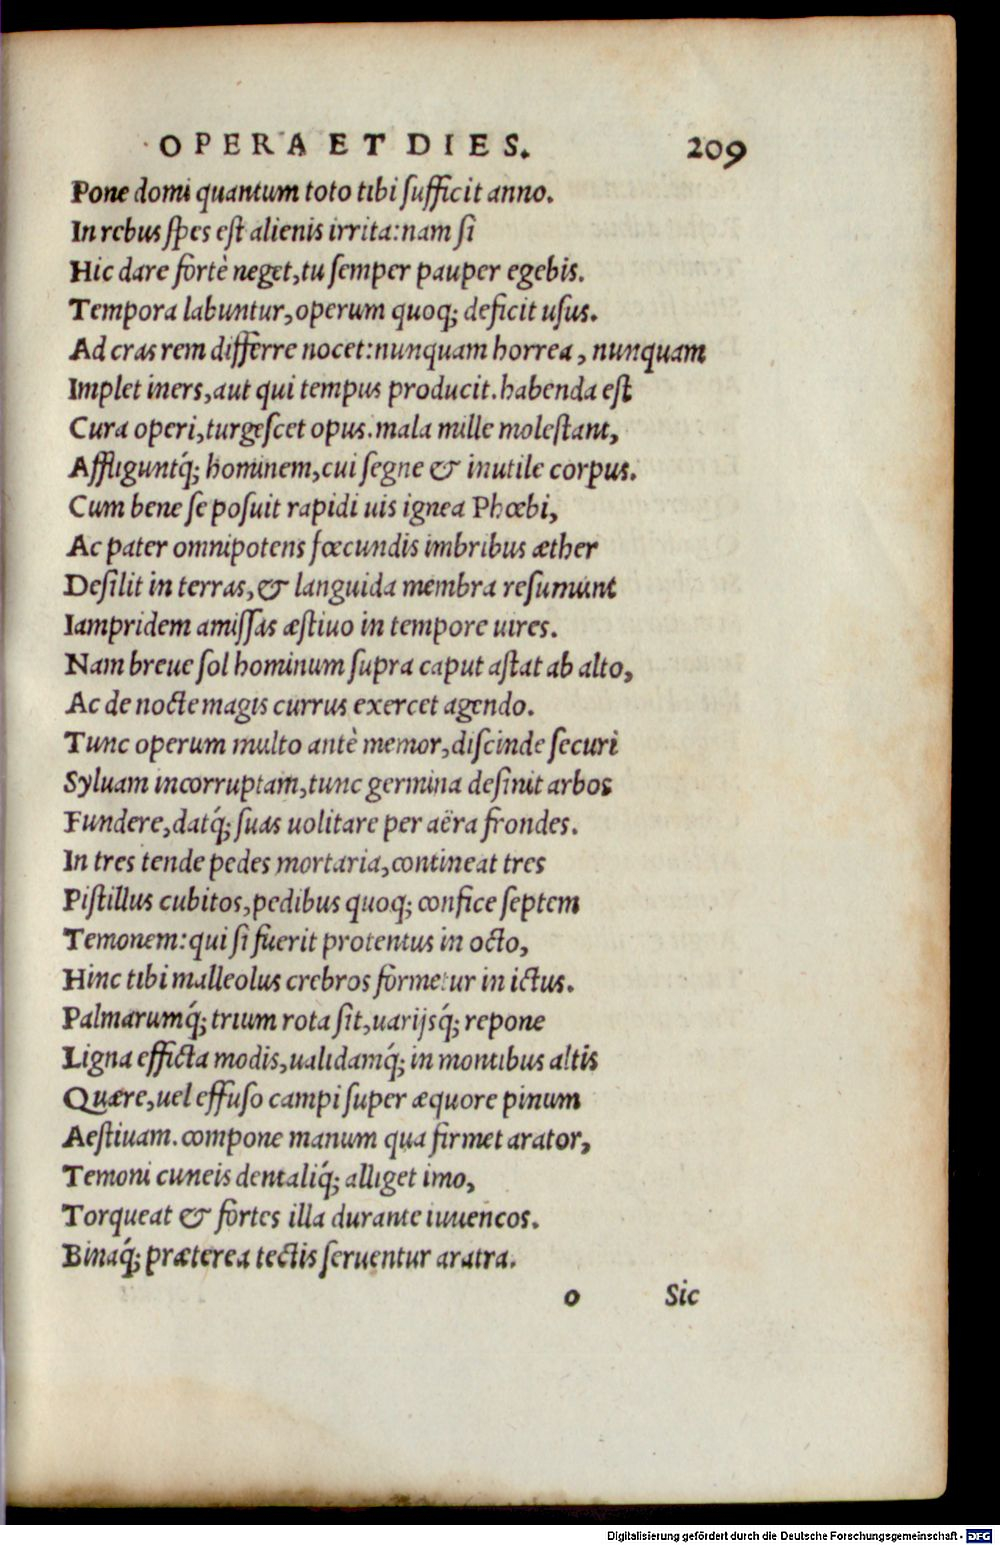 OPERA ET DIES. 209
Pone domi quantum toto tibi ſufficit anno.
In rebus ſpes eſt alienis irrita: nam ſi
Hic dare fortè neget, tu ſemper pauper egebis.
Tempora labuntur, operum quoq; deficit uſus.
Ad cras rem differre nocet: nunquam horrea, nunquam
Implet iners, aut qui tempus producit. habenda eſt
Cura operi, turgeſcet opus. mala mille moleſtant,
Affliguntq́; hominem, cui ſegne & inutile corpus.
Cum bene ſe poſuit rapidi uis ignea Phœbi,
Ac pater omnipotens fœcundis imbribus æther
Deſilit in terras, & languida membra reſumunt
Iampridem amiſſas æſtiuo in tempore uires.
Nam breue ſol hominum ſupra caput aſtat ab alto,
Ac de nocte magis currus exercet agendo.
Tunc operum multo antè memor, diſcinde ſecuri
Syluam incorruptam, tunc germina deſinit arbos
Fundere, datq́; ſuas uolitare per aëra frondes.
In tres tende pedes mortaria, contineat tres
Piſtillus cubitos, pedibus quoq; confice ſeptem
Temonem: qui ſi fuerit protentus in octo,
Hinc tibi malleolus crebros formetur in ictus.
Palmarumq́; trium rota ſit, uarijsq́; repone
Ligna efficta modis, ualidamq́; in montibus altis
Quære, uel effuſo campi ſuper æquore pinum
Aeſtiuam. compone manum qua firmet arator,
Temoni cuneis dentaliq́; alliget imo,
Torqueat & fortes illa durante iuuencos.
Binaq́; præterea tectis ſeruentur aratra.
o Sic
Digitalisierung gefördert durch die Deutsche Forschungsgemeinschaft - DFG